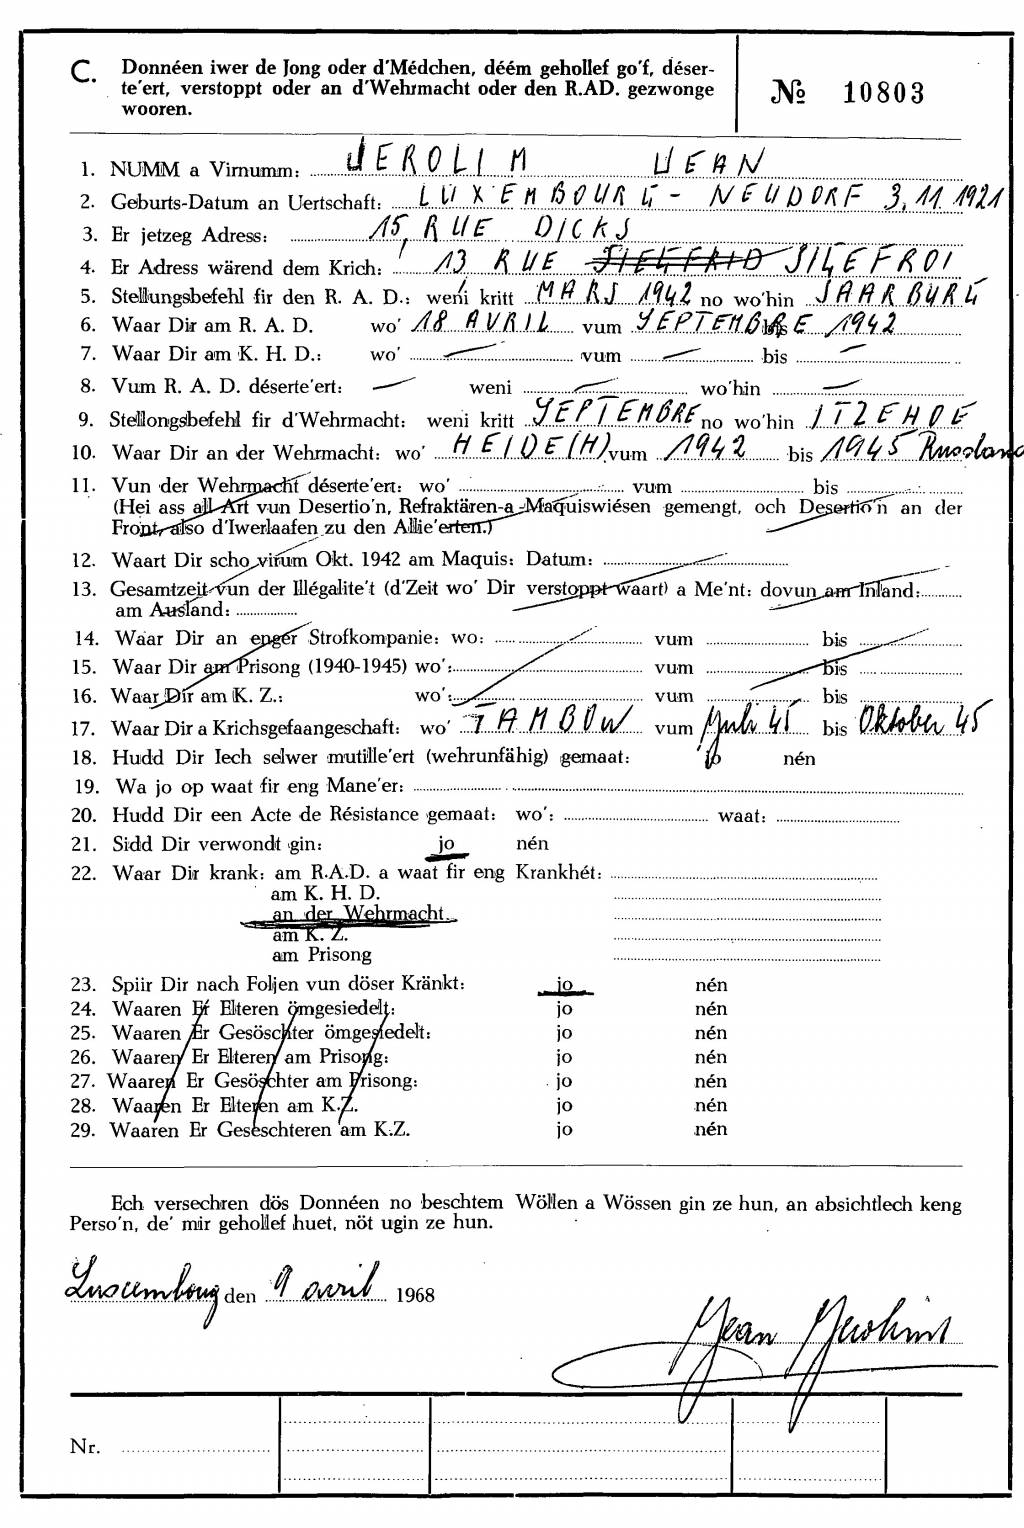 C. Donnéen iwer de Jong oder d'Médchen, déém gehollef go'f, déser-
te'ert, verstoppt oder an d'Wehrmacht oder den R.AD. gezwonge
wooren.
№ 10803
1. NUMM a Virnumm: JEROLIM JEAN
2. Geburts-Datum an Uertschaft: LUXEMBOURG - NEUDORF 3.11.1921
3. Er jetzeg Adress: 15, RUE DICKS
4. Er Adress wärend dem Krich: 13 RUE SIEGFRID SIGEFROI
5. Stellungsbefehl fir den R. A. D.: weni kritt MARS 1942 no wo'hin SAARBURG
6. Waar Dir am R. A. D. wo' 18 AVRIL vum SEPTEMBRE bis 1942
7. Waar Dir am K. H. D.: wo' — vum — bis —
8. Vum R. A. D. déserte'ert: — weni — wo'hin —
9. Stellongsbefehl fir d'Wehrmacht: weni kritt SEPTEMBRE no wo'hin ITZEHOE
10. Waar Dir an der Wehrmacht: wo' HEIDE (H) vum 1942 bis 1945 Russland
11. Vun der Wehrmacht déserte'ert: wo' vum bis
(Hei ass all Art vun Desertio'n, Refraktären-a -Maquiswiésen gemengt, och Desertio'n an der
Front, also d'Iwerlaafen zu den Allie'erten.)
12. Waart Dir scho virum Okt. 1942 am Maquis: Datum:
13. Gesamtzeit vun der Illégalite't (d'Zeit wo' Dir verstoppt waart) a Me'nt: dovun am Inland:
am Ausland:
14. Waar Dir an enger Strofkompanie: wo: vum bis
15. Waar Dir am Prisong (1940-1945) wo': vum bis
16. Waar Dir am K. Z.: wo': vum bis
17. Waar Dir a Krichsgefaangeschaft: wo' TAMBOW vum Juli 45 bis Oktober 45
18. Hudd Dir Iech selwer mutille'ert (wehrunfähig) gemaat: jo nén
19. Wa jo op waat fir eng Mane'er:
20. Hudd Dir een Acte de Résistance gemaat: wo': waat:
21. Sidd Dir verwondt gin: jo nén
22. Waar Dir krank: am R.A.D. a waat fir eng Krankhét:
am K. H. D.
an der Wehrmacht
am K. Z.
am Prisong
23. Spiir Dir nach Foljen vun döser Kränkt: jo nén
24. Waaren Er Elteren ömgesiedelt: jo nén
25. Waaren Er Gesöschter ömgesiedelt: jo nén
26. Waaren Er Elteren am Prisong: jo nén
27. Waaren Er Gesöschter am Prisong: jo nén
28. Waaren Er Elteren am K.Z. jo nén
29. Waaren Er Geseschteren am K.Z. jo nén
Ech versechren dös Donnéen no beschtem Wöllen a Wössen gin ze hun, an absichtlech keng
Perso'n, de' mir gehollef huet, nöt ugin ze hun.
Luxembourg den 9 avril 1968
Jean Jerolim
Nr.